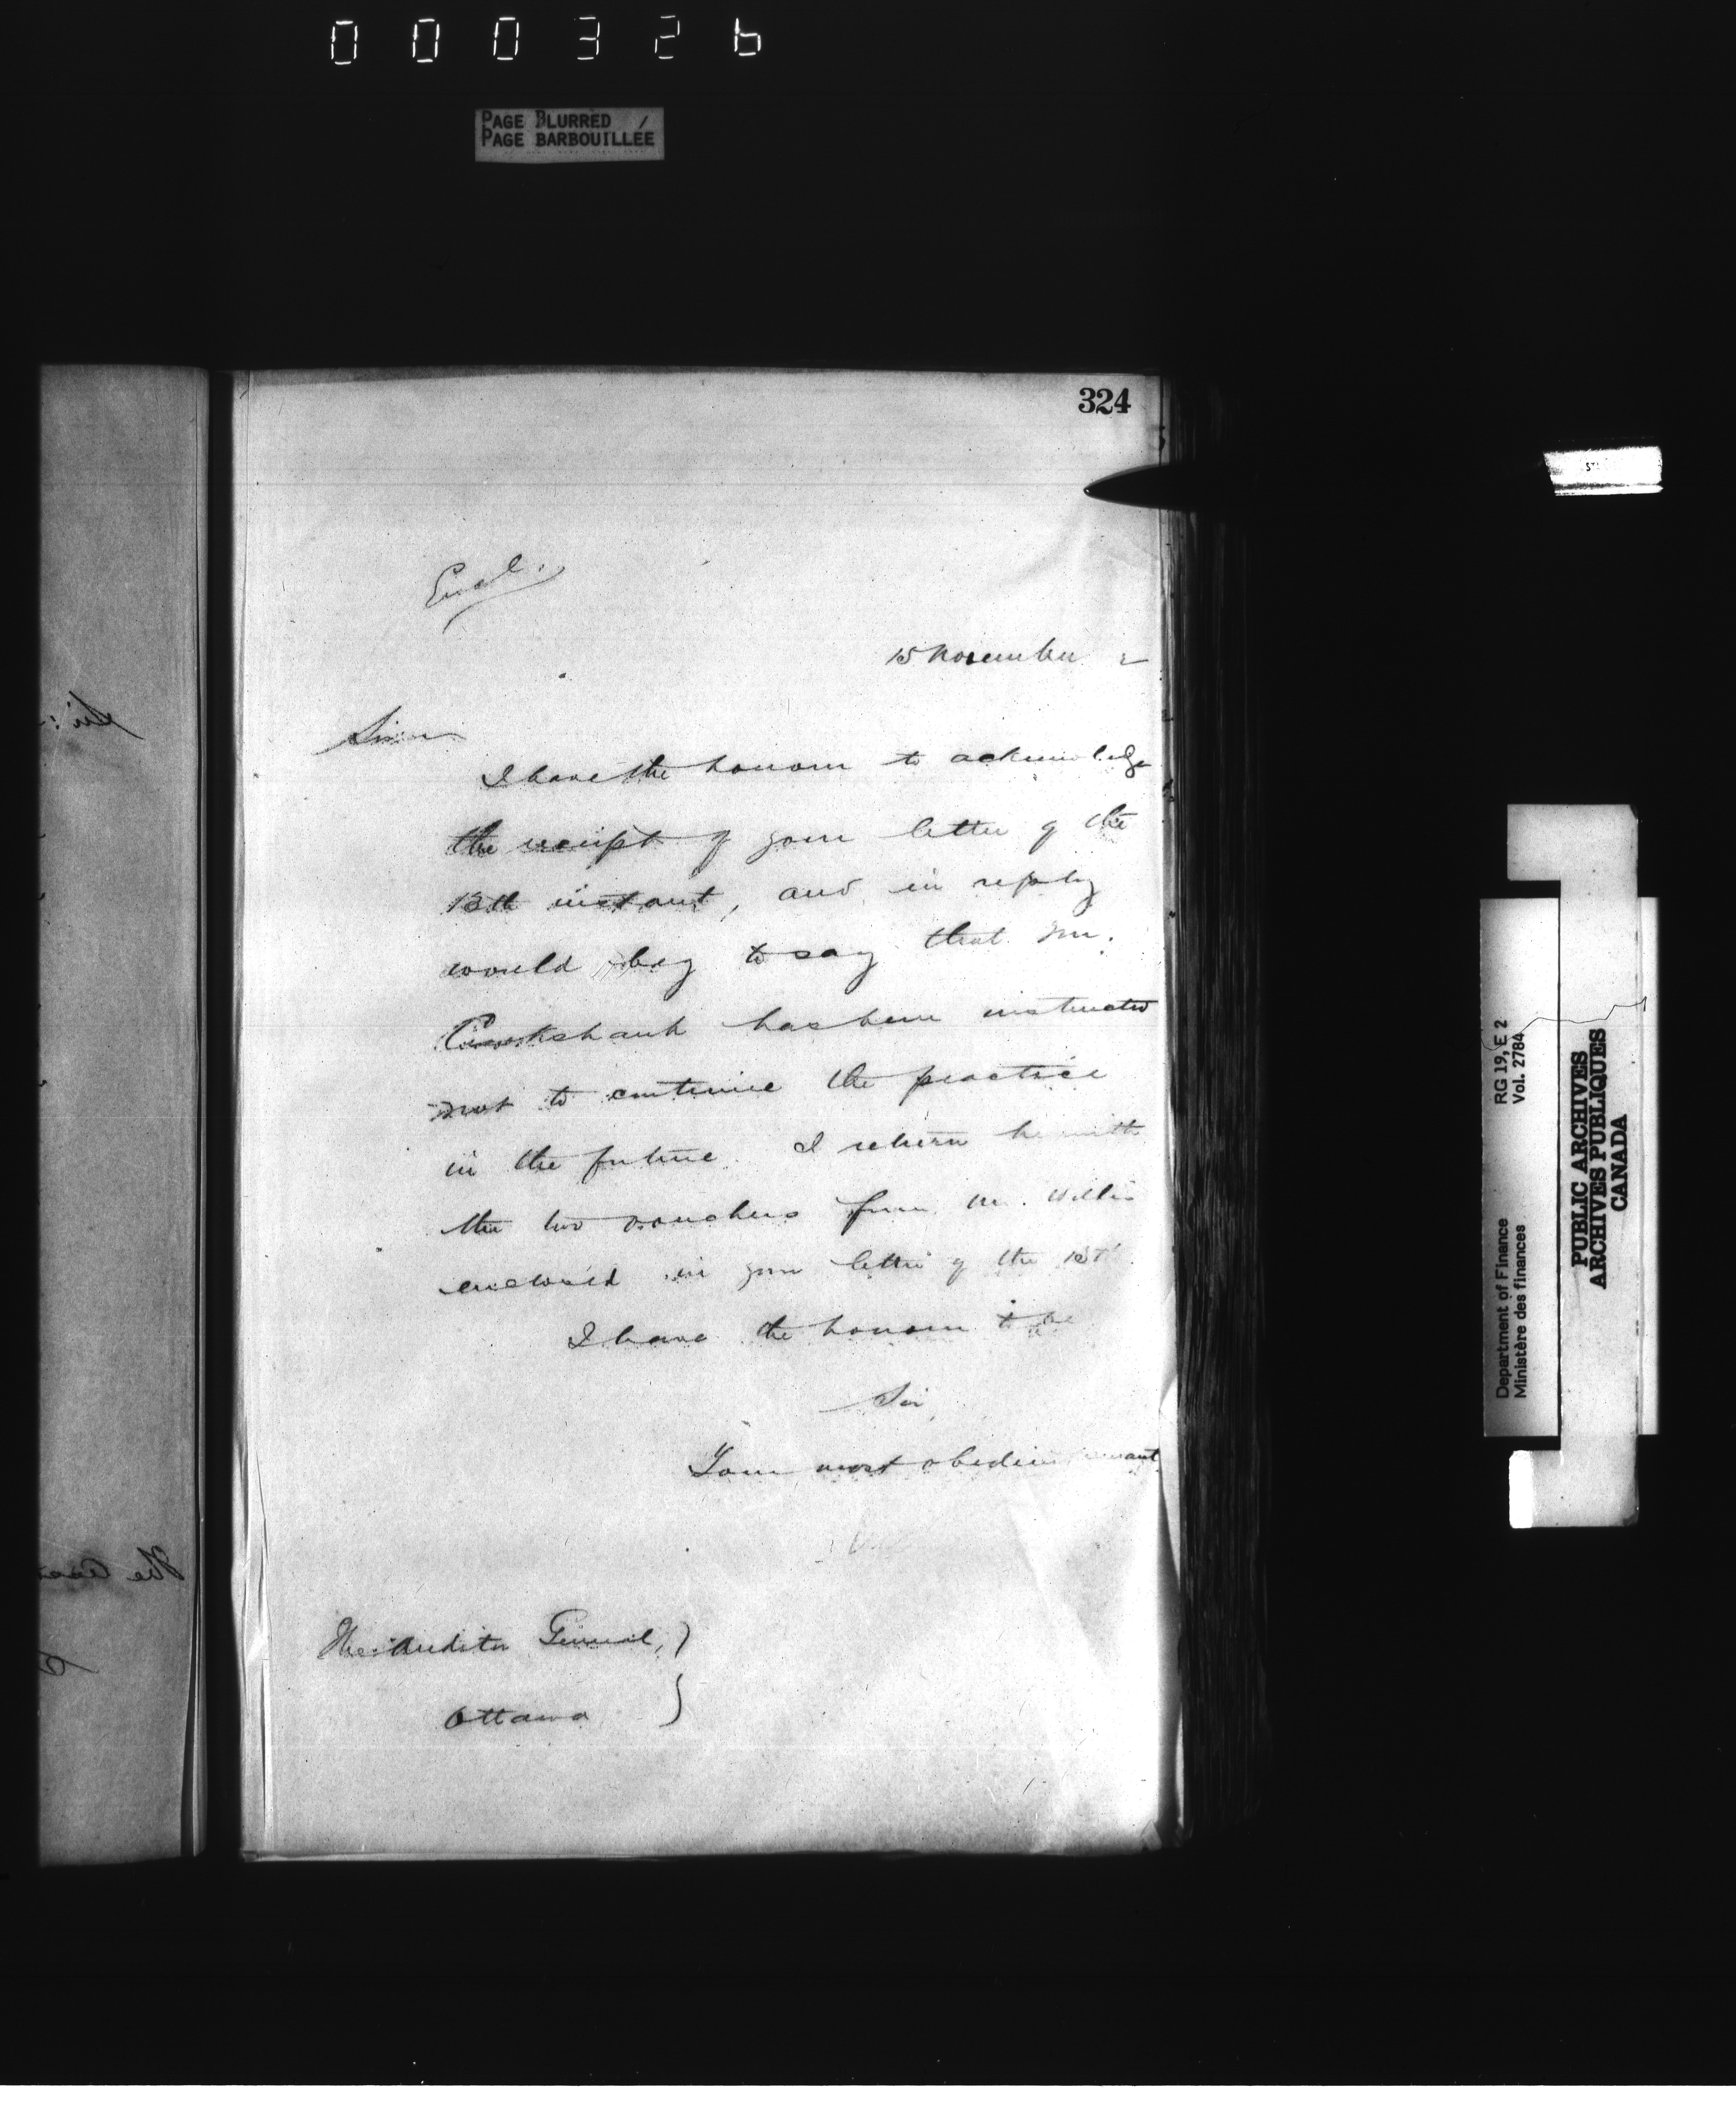 000326
PAGE BLURRED /
PAGE BARBOUILLÉE
324
Encl.
15 November 2
Sir
I have the honour to acknowledge
the receipt of your letter of the
13th instant, and in reply
would beg to say that Mr.
Cruikshank has been instructed
not to continue the practice
in the future. I return herewith
the two vouchers from Mr. Willis
enclosed in your letter of the 13th
I have the honour to be
Sir
Your most obedient servant
The Auditor General, )
Ottawa )
RG 19, E 2
Vol. 2784
Department of Finance
Ministère des finances
PUBLIC ARCHIVES
ARCHIVES PUBLIQUES
CANADA